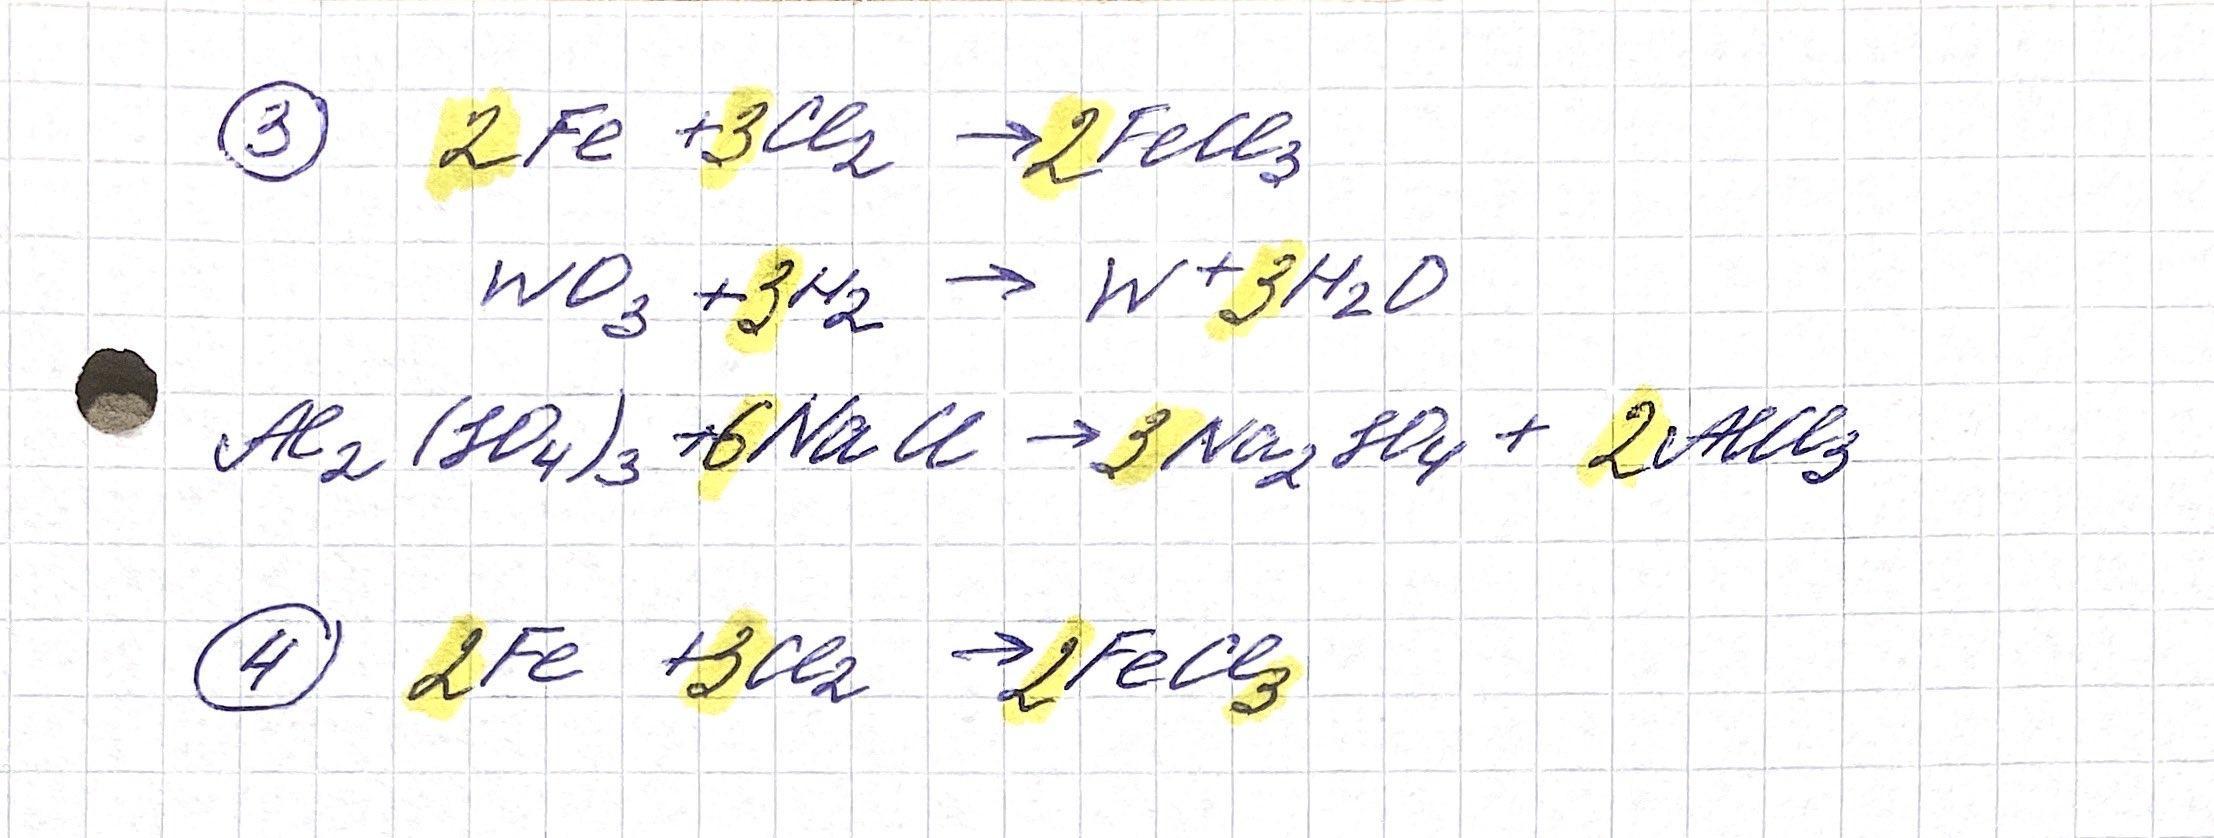 ③ 2Fe +3Cl₂ → 2FeCl₃
WO₃ +3H₂ → W+3H₂O
Al₂(SO₄)₃ +6NaCl → 3Na₂SO₄ + 2AlCl₃
④ 2Fe +3Cl₂ → 2FeCl₃